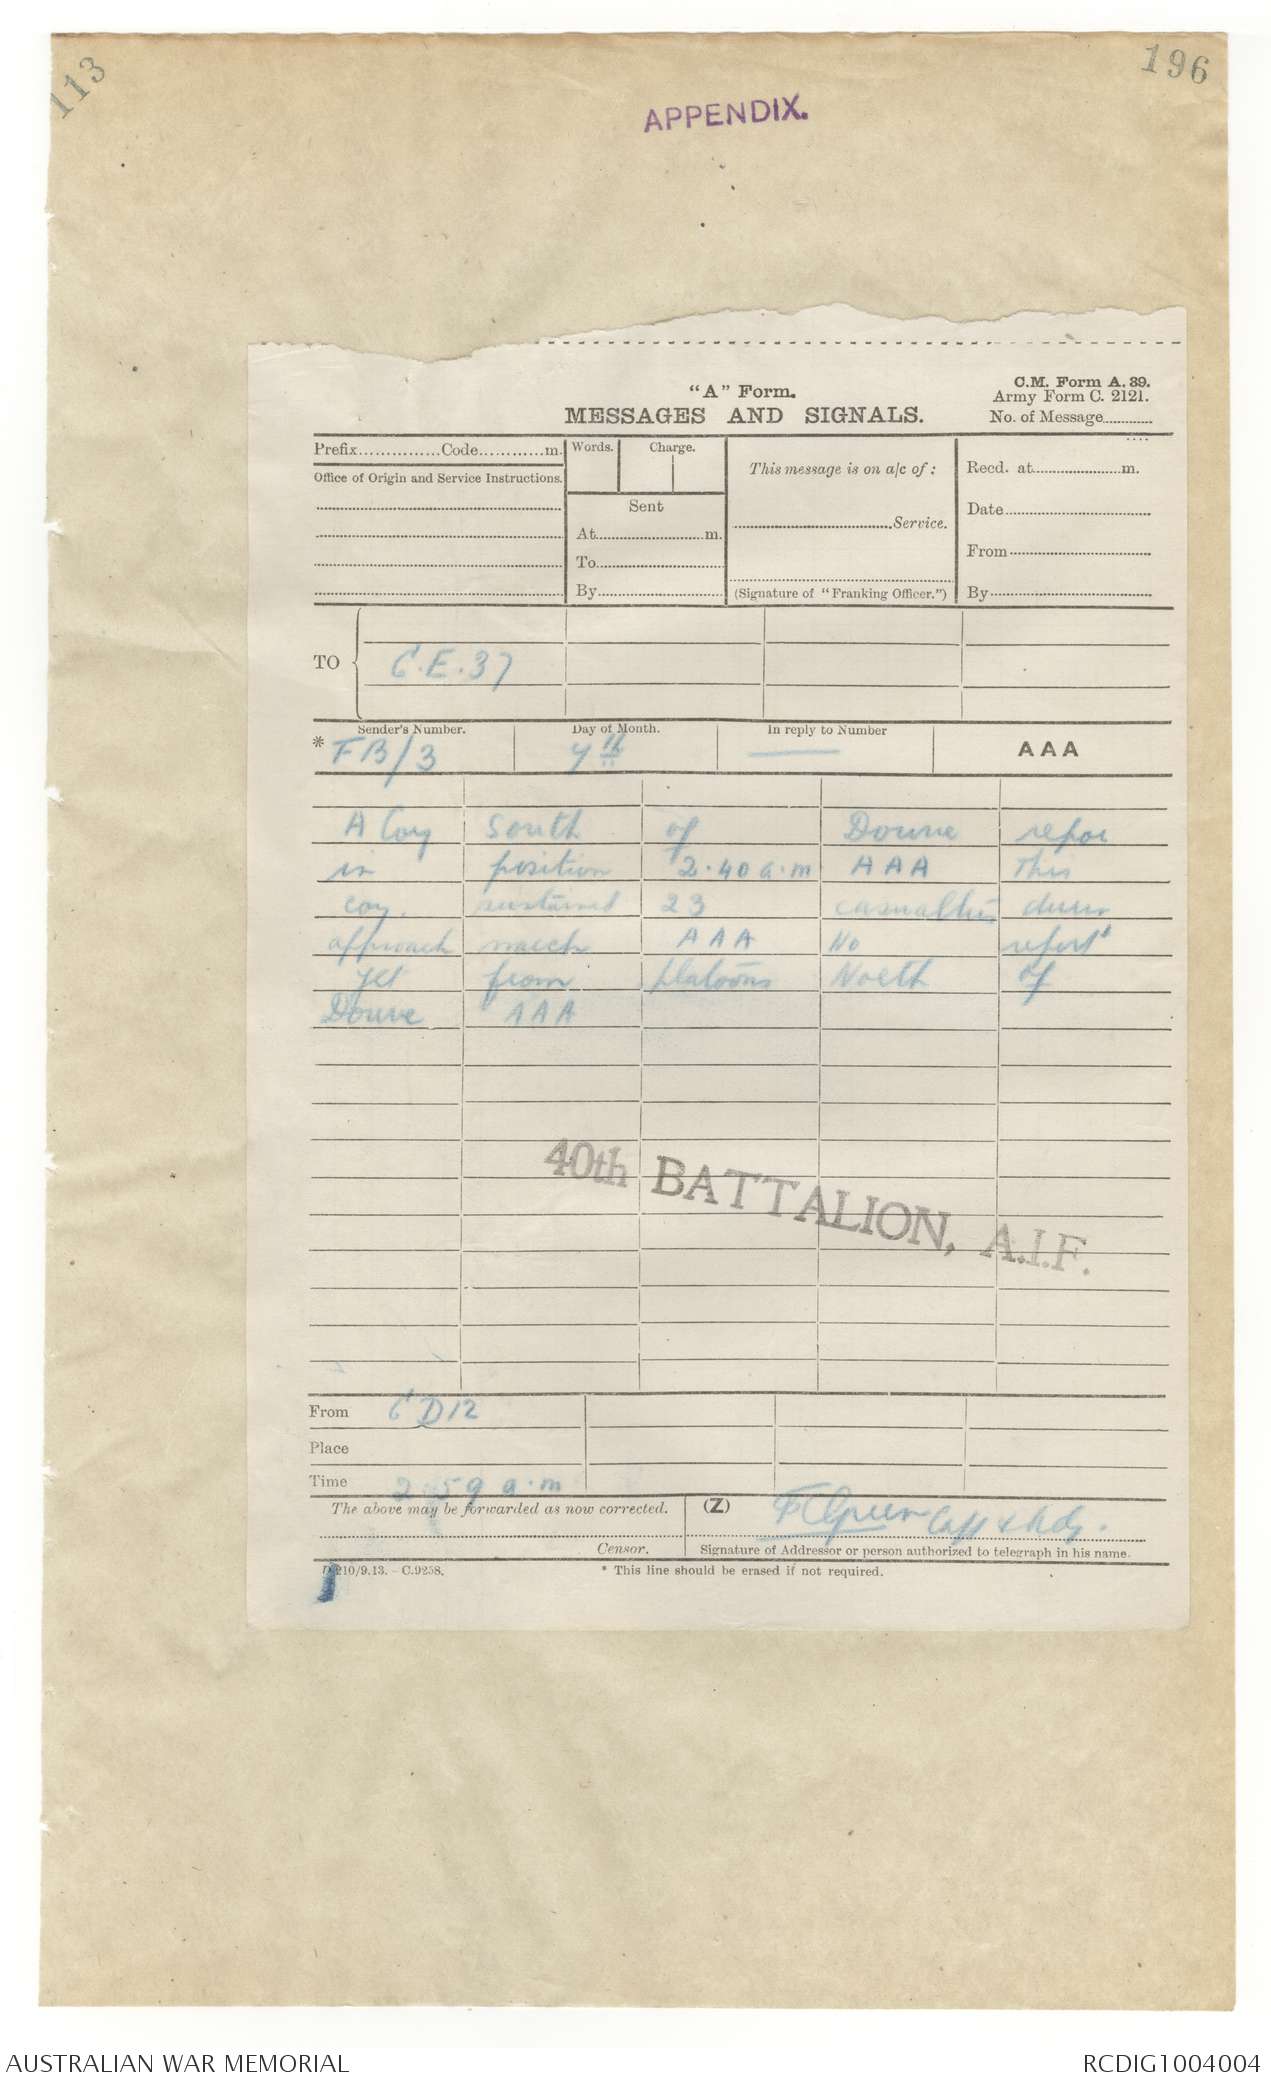 113
196
APPENDIX.
"A" Form.
MESSAGES AND SIGNALS.
C.M. Form A. 39.
Army Form C. 2121.
No. of Message............
Prefix...............Code............m.
Words. Charge.
This message is on a/c of :
Recd. at......................m.
Office of Origin and Service Instructions.
Sent
At..........................m.
..........................Service.
Date
To
From
By
(Signature of "Franking Officer.")
By
TO
C.E.37
Sender's Number. Day of Month. In reply to Number
* FB/3 7th — AAA
A Coy South of Douve repor
in position 2.40 a.m AAA This
coy. sustained 23 casualties durin
approach march AAA No report
yet from platoons North of
Douve AAA
40th BATTALION, A.I.F.
From CD12
Place
Time 2.59 a.m
The above may be forwarded as now corrected. (Z)
Capt & Adj.
Censor. Signature of Addressor or person authorized to telegraph in his name.
D 210/9.13. - C.9258. * This line should be erased if not required.
AUSTRALIAN WAR MEMORIAL RCDIG1004004